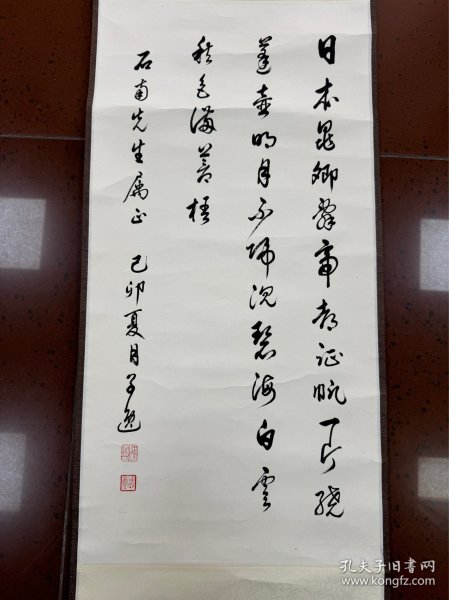 日本晁卿辞帝都征帆一片繞
蓬壺明月不歸沉碧海白雲
愁色滿蒼梧
石南先生属正 己卯夏月
孔夫子旧书网
www.kongfz.com